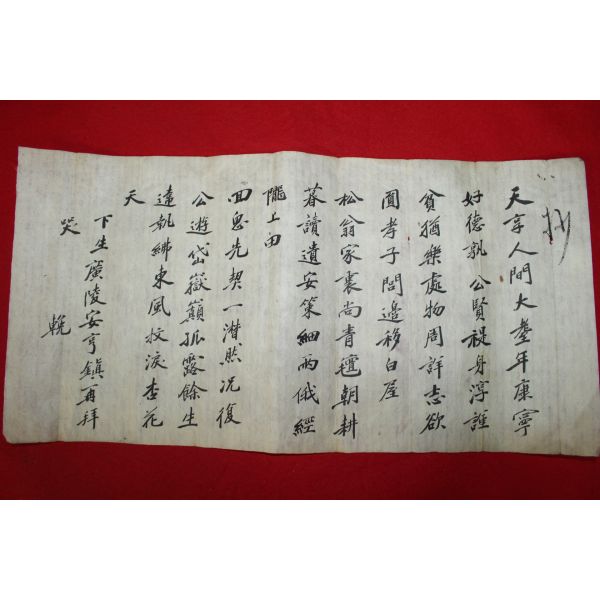 天享人間大耋年康寧
好德孰 公賢禔身淳謹
貧猶樂處物周詳志欲
圓孝子閭邊移白屋
松翁家裏尚青氊朝耕
暮讀遺安策細雨俄經
隴上田
回思先契一潸然况復
公遊岱嶽巓孤露餘生
違執紼東風抆淚杏花
天
下生廣陵安亨鎭再拜
哭 輓